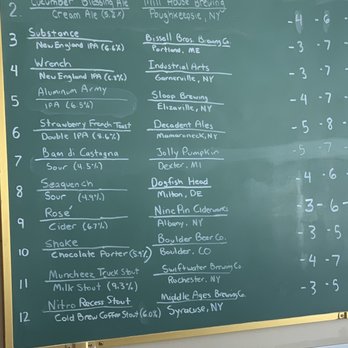 2 Cucumber Blessing Ale Mill House Brewing -4 -6
Cream Ale (5.2%) Poughkeepsie, NY
3 Substance Bissell Bros. Brewing Co -3 -7
New England IPA (6.6%) Portland, ME
4 Wrench Industrial Arts -3 -7
New England IPA Garnerville, NY
5 Aluminum Army Sloop Brewing -4 -7
IPA (6.5%) Elizaville, NY
6 Strawberry French Toast Decadent Ales -5 -8 -
Double IPA Mamaroneck, NY
7 Bam di Castagna Jolly Pumpkin -5 -7
Sour (4.5%) Dexter, MI
8 Seaquench Dogfish Head -4 -6
Sour (4.9%) Milton, DE
9 Rosé Nine Pin Ciderworks -3 -6
Cider (6.7%) Albany, NY
10 Shake Boulder Beer Co. -3 -5
Chocolate Porter (5.9%) Boulder, CO
11 Muncheez Truck Stout Swiftwater Brewing Co -4 -7
Milk Stout (9.3%) Rochester, NY
12 Nitro Recess Stout Middle Ages Brewing Co. -3 -5
Cold Brew Coffee Stout (6.0%) Syracuse, NY